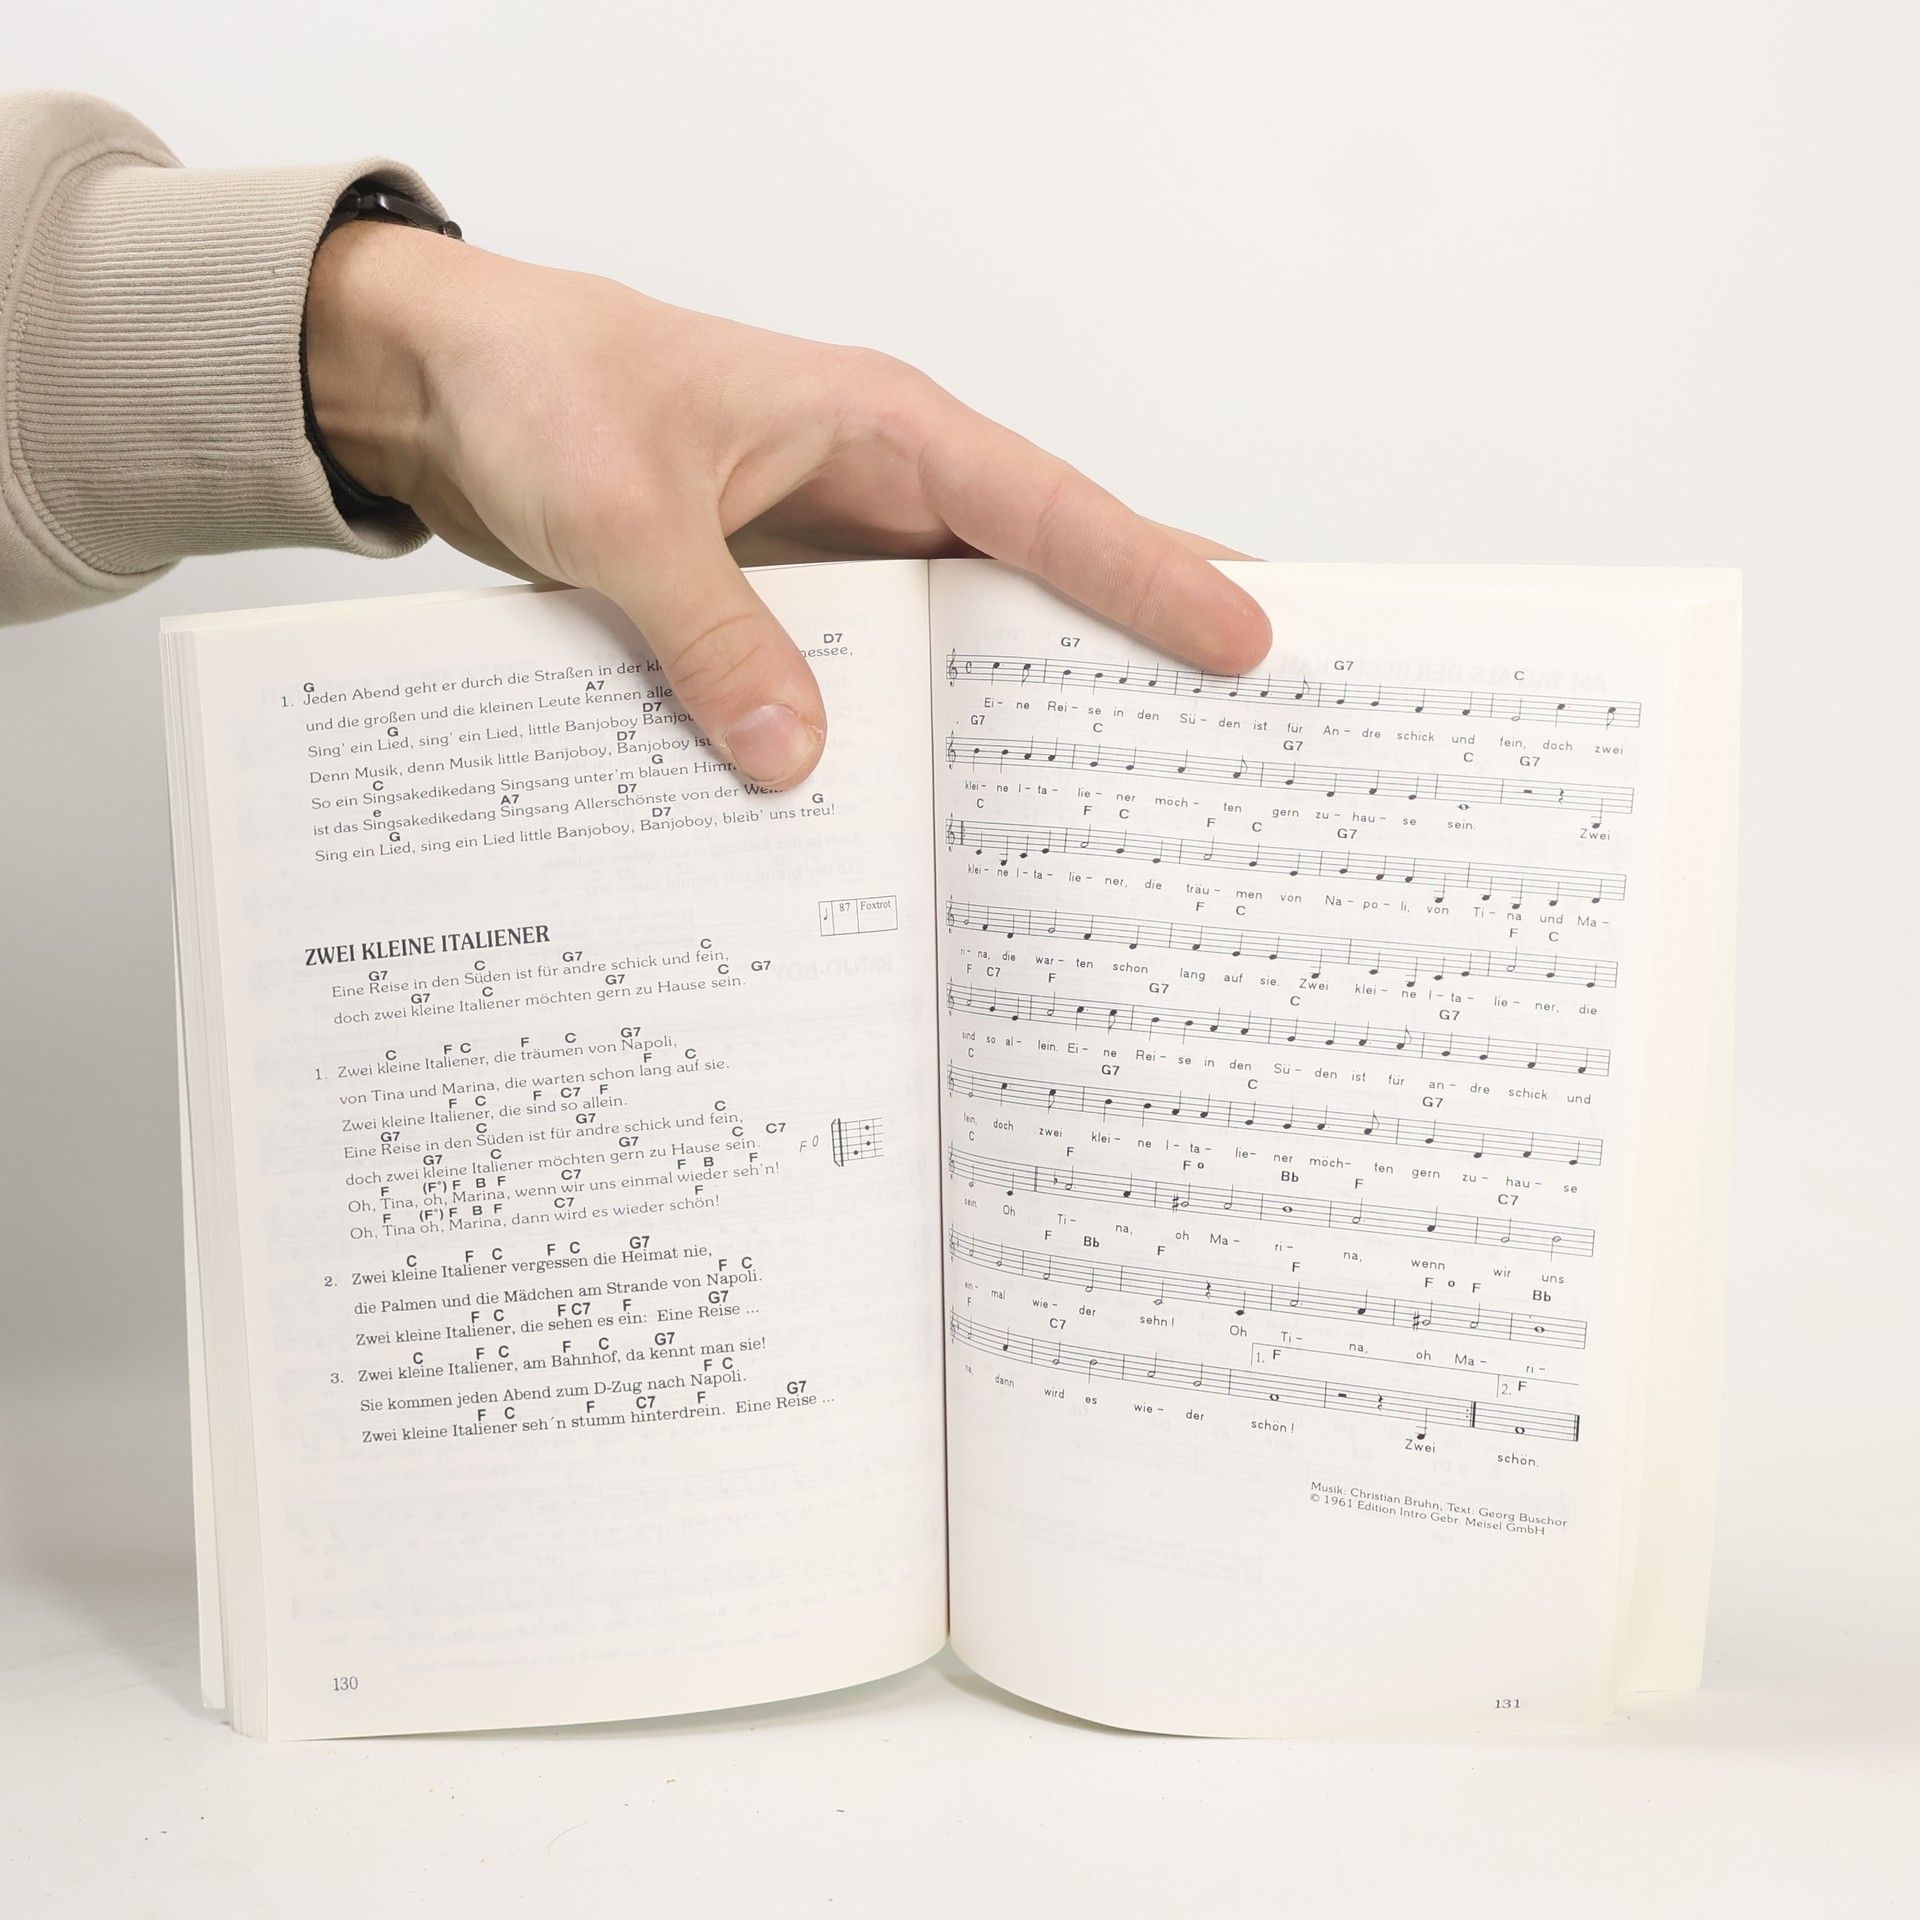 G D7
1. Jeden Abend geht er durch die Straßen in der essee,
A7
und die großen und die kleinen Leute kennen alle
D7
Sing' ein Lied, sing' ein Lied, little Banjoboy
G D7
Denn Musik, denn Musik little Banjoboy, Banjoboy ist
G
So ein Singsakedikedang Singsang unter'm blauen
C D7
ist das Singsakedikedang Singsang Allerschönste von der
e A7 D7 G
Sing ein Lied, sing ein Lied little Banjoboy, Banjoboy, bleib' uns treu!
G
87 Foxtrot
ZWEI KLEINE ITALIENER
G7 C G7 C
Eine Reise in den Süden ist für andre schick und fein,
G7 C G7 C G7
doch zwei kleine Italiener möchten gern zu Hause sein.
C F C F C G7
1. Zwei kleine Italiener, die träumen von Napoli,
F C
von Tina und Marina, die warten schon lang auf sie.
F C F C7 F
Zwei kleine Italiener, die sind so allein.
G7 C G7 C
Eine Reise in den Süden ist für andre schick und fein,
G7 C G7 C C7
doch zwei kleine Italiener möchten gern zu Hause sein.
F (F°) F B F C7 F B F
Oh, Tina, oh, Marina, wenn wir uns einmal wieder seh'n!
F (F°) F B F C7 F
Oh, Tina oh, Marina, dann wird es wieder schön!
F O
C F C F C G7
2. Zwei kleine Italiener vergessen die Heimat nie,
F C
die Palmen und die Mädchen am Strande von Napoli.
F C F C7 F G7
Zwei kleine Italiener, die sehen es ein: Eine Reise ...
C F C F C G7
3. Zwei kleine Italiener, am Bahnhof, da kennt man sie!
F C
Sie kommen jeden Abend zum D-Zug nach Napoli.
F C F C7 F G7
Zwei kleine Italiener seh´n stumm hinterdrein. Eine Reise ...
130
G7 G7 C
Ei- ne Rei- se in den Sü- den ist für An- dre schick und fein, doch zwei
G7 C G7 C G7
klei- ne I- ta- lie- ner möch- ten gern zu- hau- se sein. Zwei
C F C F C G7
klei- ne I- ta- lie- ner, die träu- men von Na- po- li, von Ti- na und Ma-
F C F C
ri- na, die war- ten schon lang auf sie. Zwei klei- ne I- ta- lie- ner, die
F C7 F G7 C G7
sind so al- lein. Ei- ne Rei- se in den Sü- den ist für an- dre schick und
C G7 C G7
fein, doch zwei klei- ne I- ta- lie- ner möch- ten gern zu- hau- se
C F F o Bb F C7
sein. Oh Ti- na, oh Ma- ri- na, wenn wir uns
F Bb F F F o F Bb
ein- mal wie- der sehn! Oh Ti- na, oh Ma- ri-
F C7 1. F 2. F
na, dann wird es wie- der schön! Zwei schön.
Musik: Christian Bruhn, Text: Georg Buschor
© 1961 Edition Intro Gebr. Meisel GmbH
131